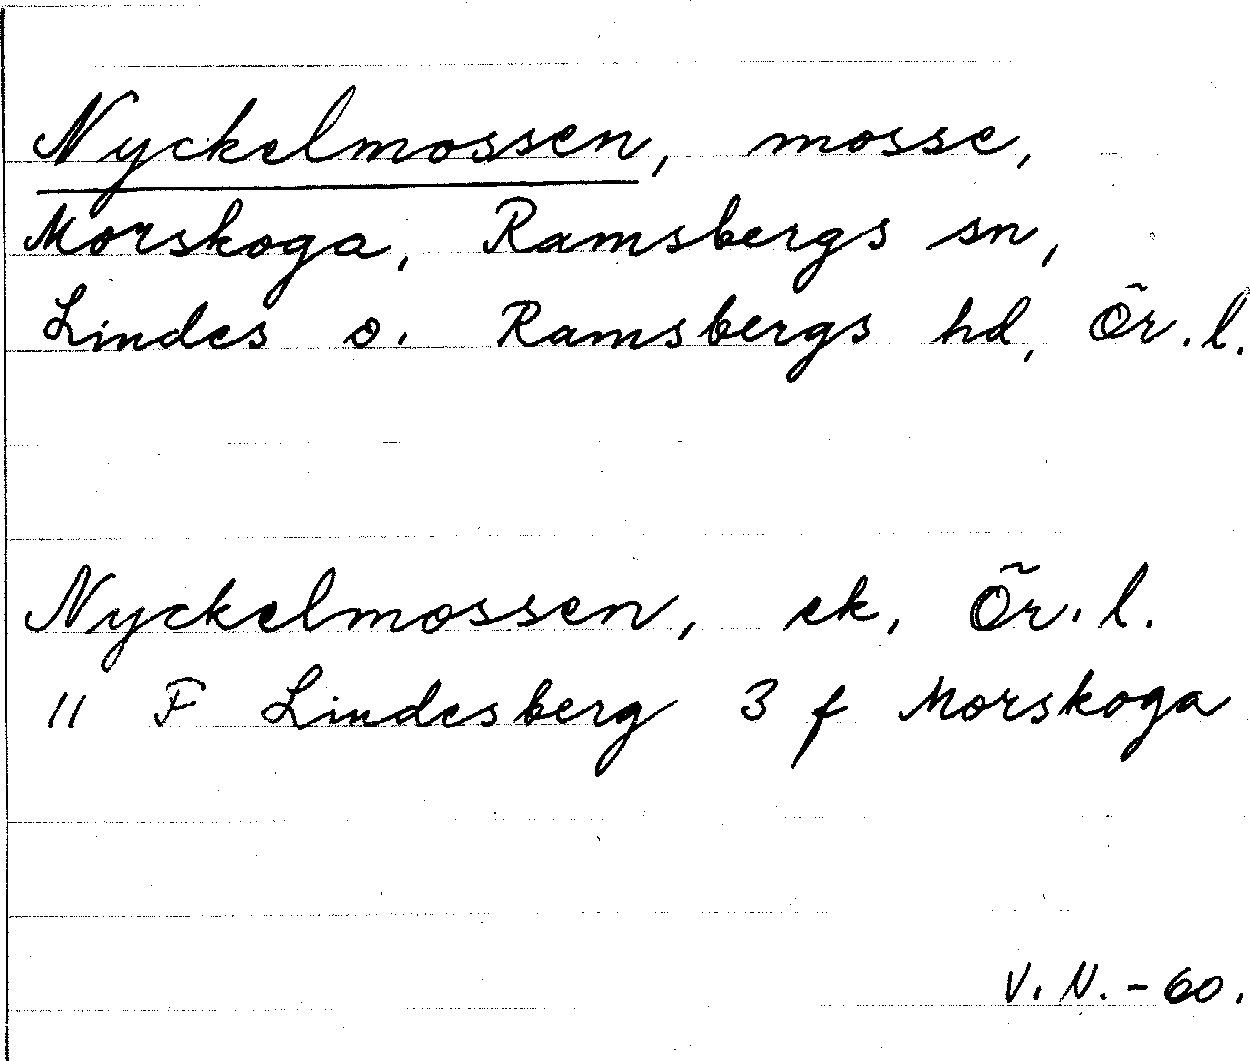 Nyckelmossen, mosse,
Morskoga, Ramsbergs sn,
Lindes o. Ramsbergs hd, Ör. l.
Nyckelmossen, ek, Ör. l.
11 F Lindesberg 3 f Morskoga
V. N. - 60.